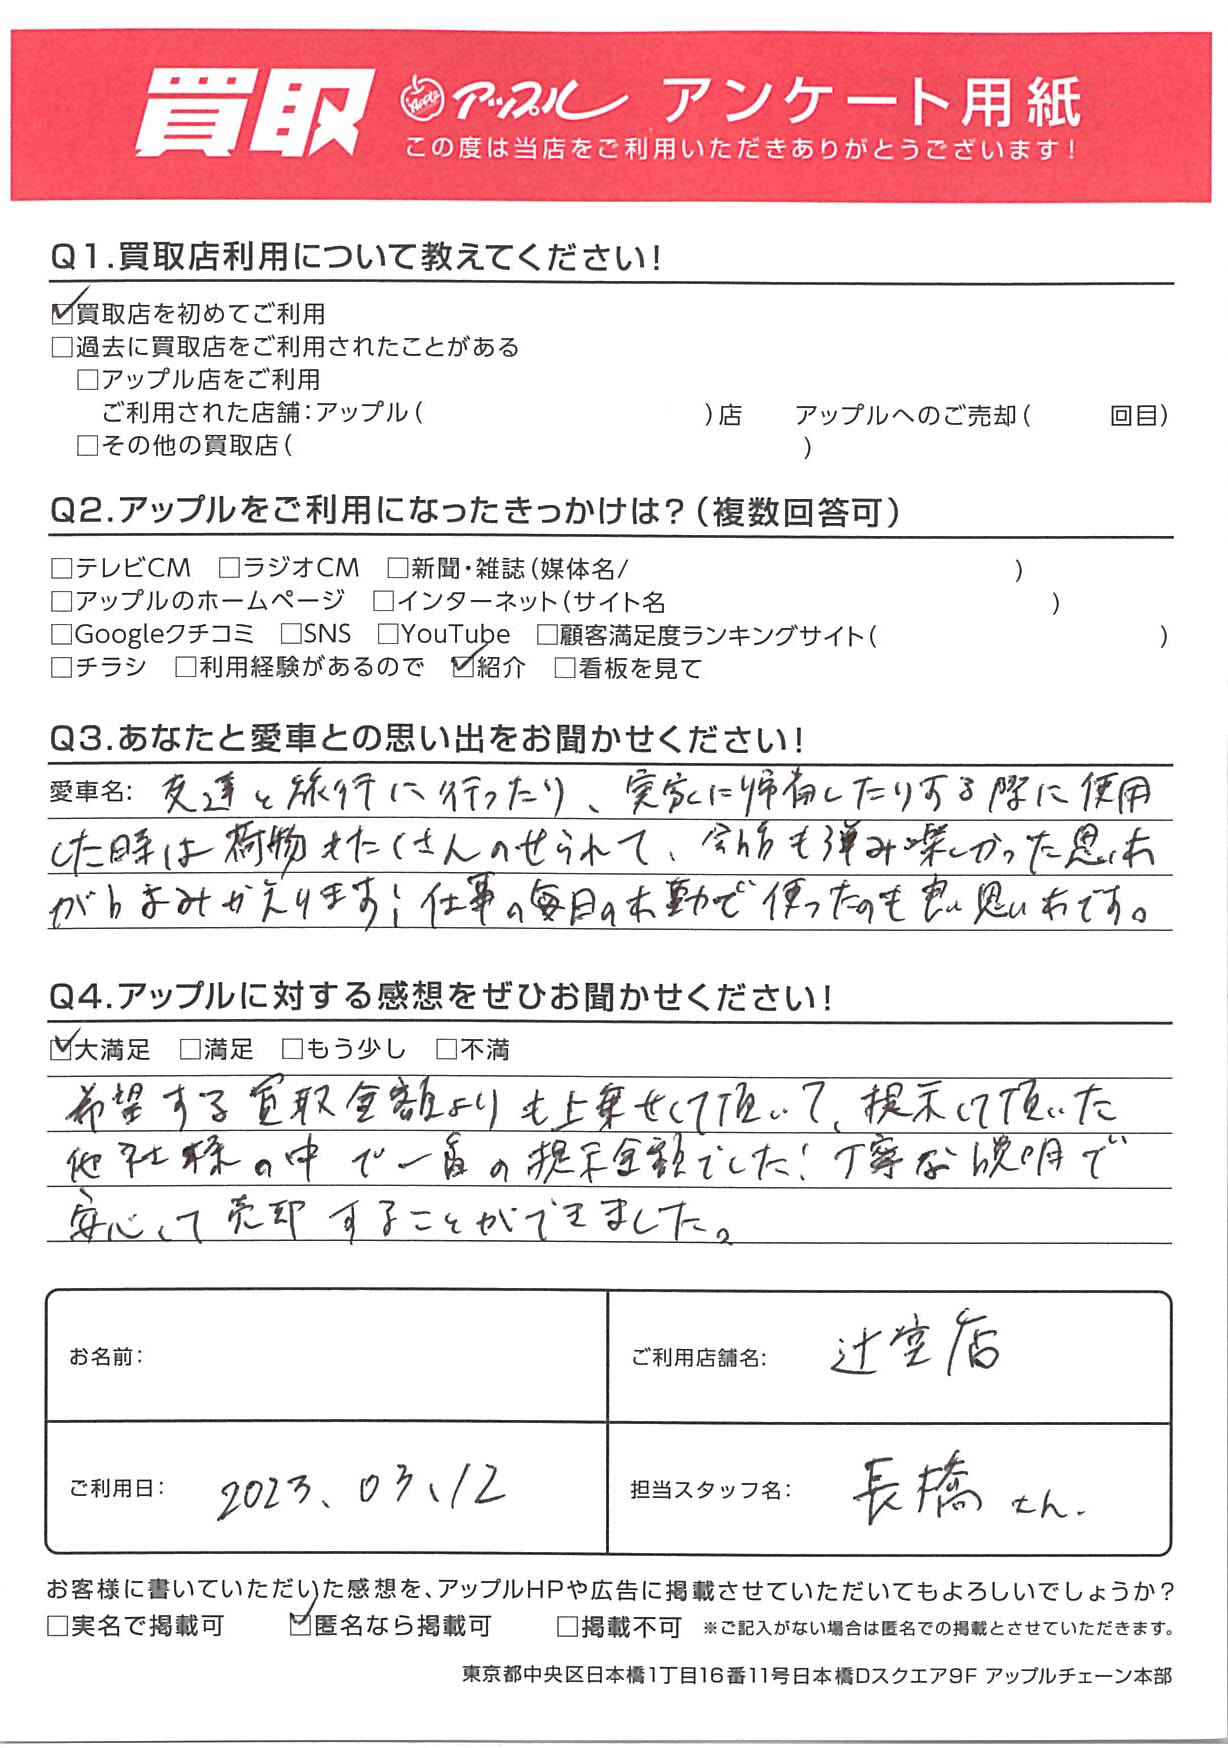 買取 アップル アンケート用紙
この度は当店をご利用いただきありがとうございます!
Q1.買取店利用について教えてください!
☑買取店を初めてご利用
□過去に買取店をご利用されたことがある
□アップル店をご利用
ご利用された店舗:アップル( )店 アップルへのご売却( 回目)
□その他の買取店( )
Q2.アップルをご利用になったきっかけは?(複数回答可)
□テレビCM □ラジオCM □新聞・雑誌(媒体名/ )
□アップルのホームページ □インターネット(サイト名 )
□Googleクチコミ □SNS □YouTube □顧客満足度ランキングサイト( )
□チラシ □利用経験があるので ☑紹介 □看板を見て
Q3.あなたと愛車との思い出をお聞かせください!
愛車名: 友達と旅行に行ったり、実家に帰省したりする際に使用
した時は荷物もたくさんのせられて、会話も弾み楽しかった思い出
がよみがえります!仕事の毎日の出勤で使ったのも良い思い出です。
Q4.アップルに対する感想をぜひお聞かせください!
☑大満足 □満足 □もう少し □不満
希望する買取金額よりも上乗せして頂いて、提示して頂いた
他社様の中で一番の提示金額でした!丁寧な説明で
安心して売却することができました。
お名前:
ご利用店舗名: 辻堂店
ご利用日: 2023.03.12
担当スタッフ名: 長橋さん.
お客様に書いていただいた感想を、アップルHPや広告に掲載させていただいてもよろしいでしょうか?
□実名で掲載可 ☑匿名なら掲載可 □掲載不可 ※ご記入がない場合は匿名での掲載とさせていただきます。
東京都中央区日本橋1丁目16番11号日本橋Dスクエア9F アップルチェーン本部